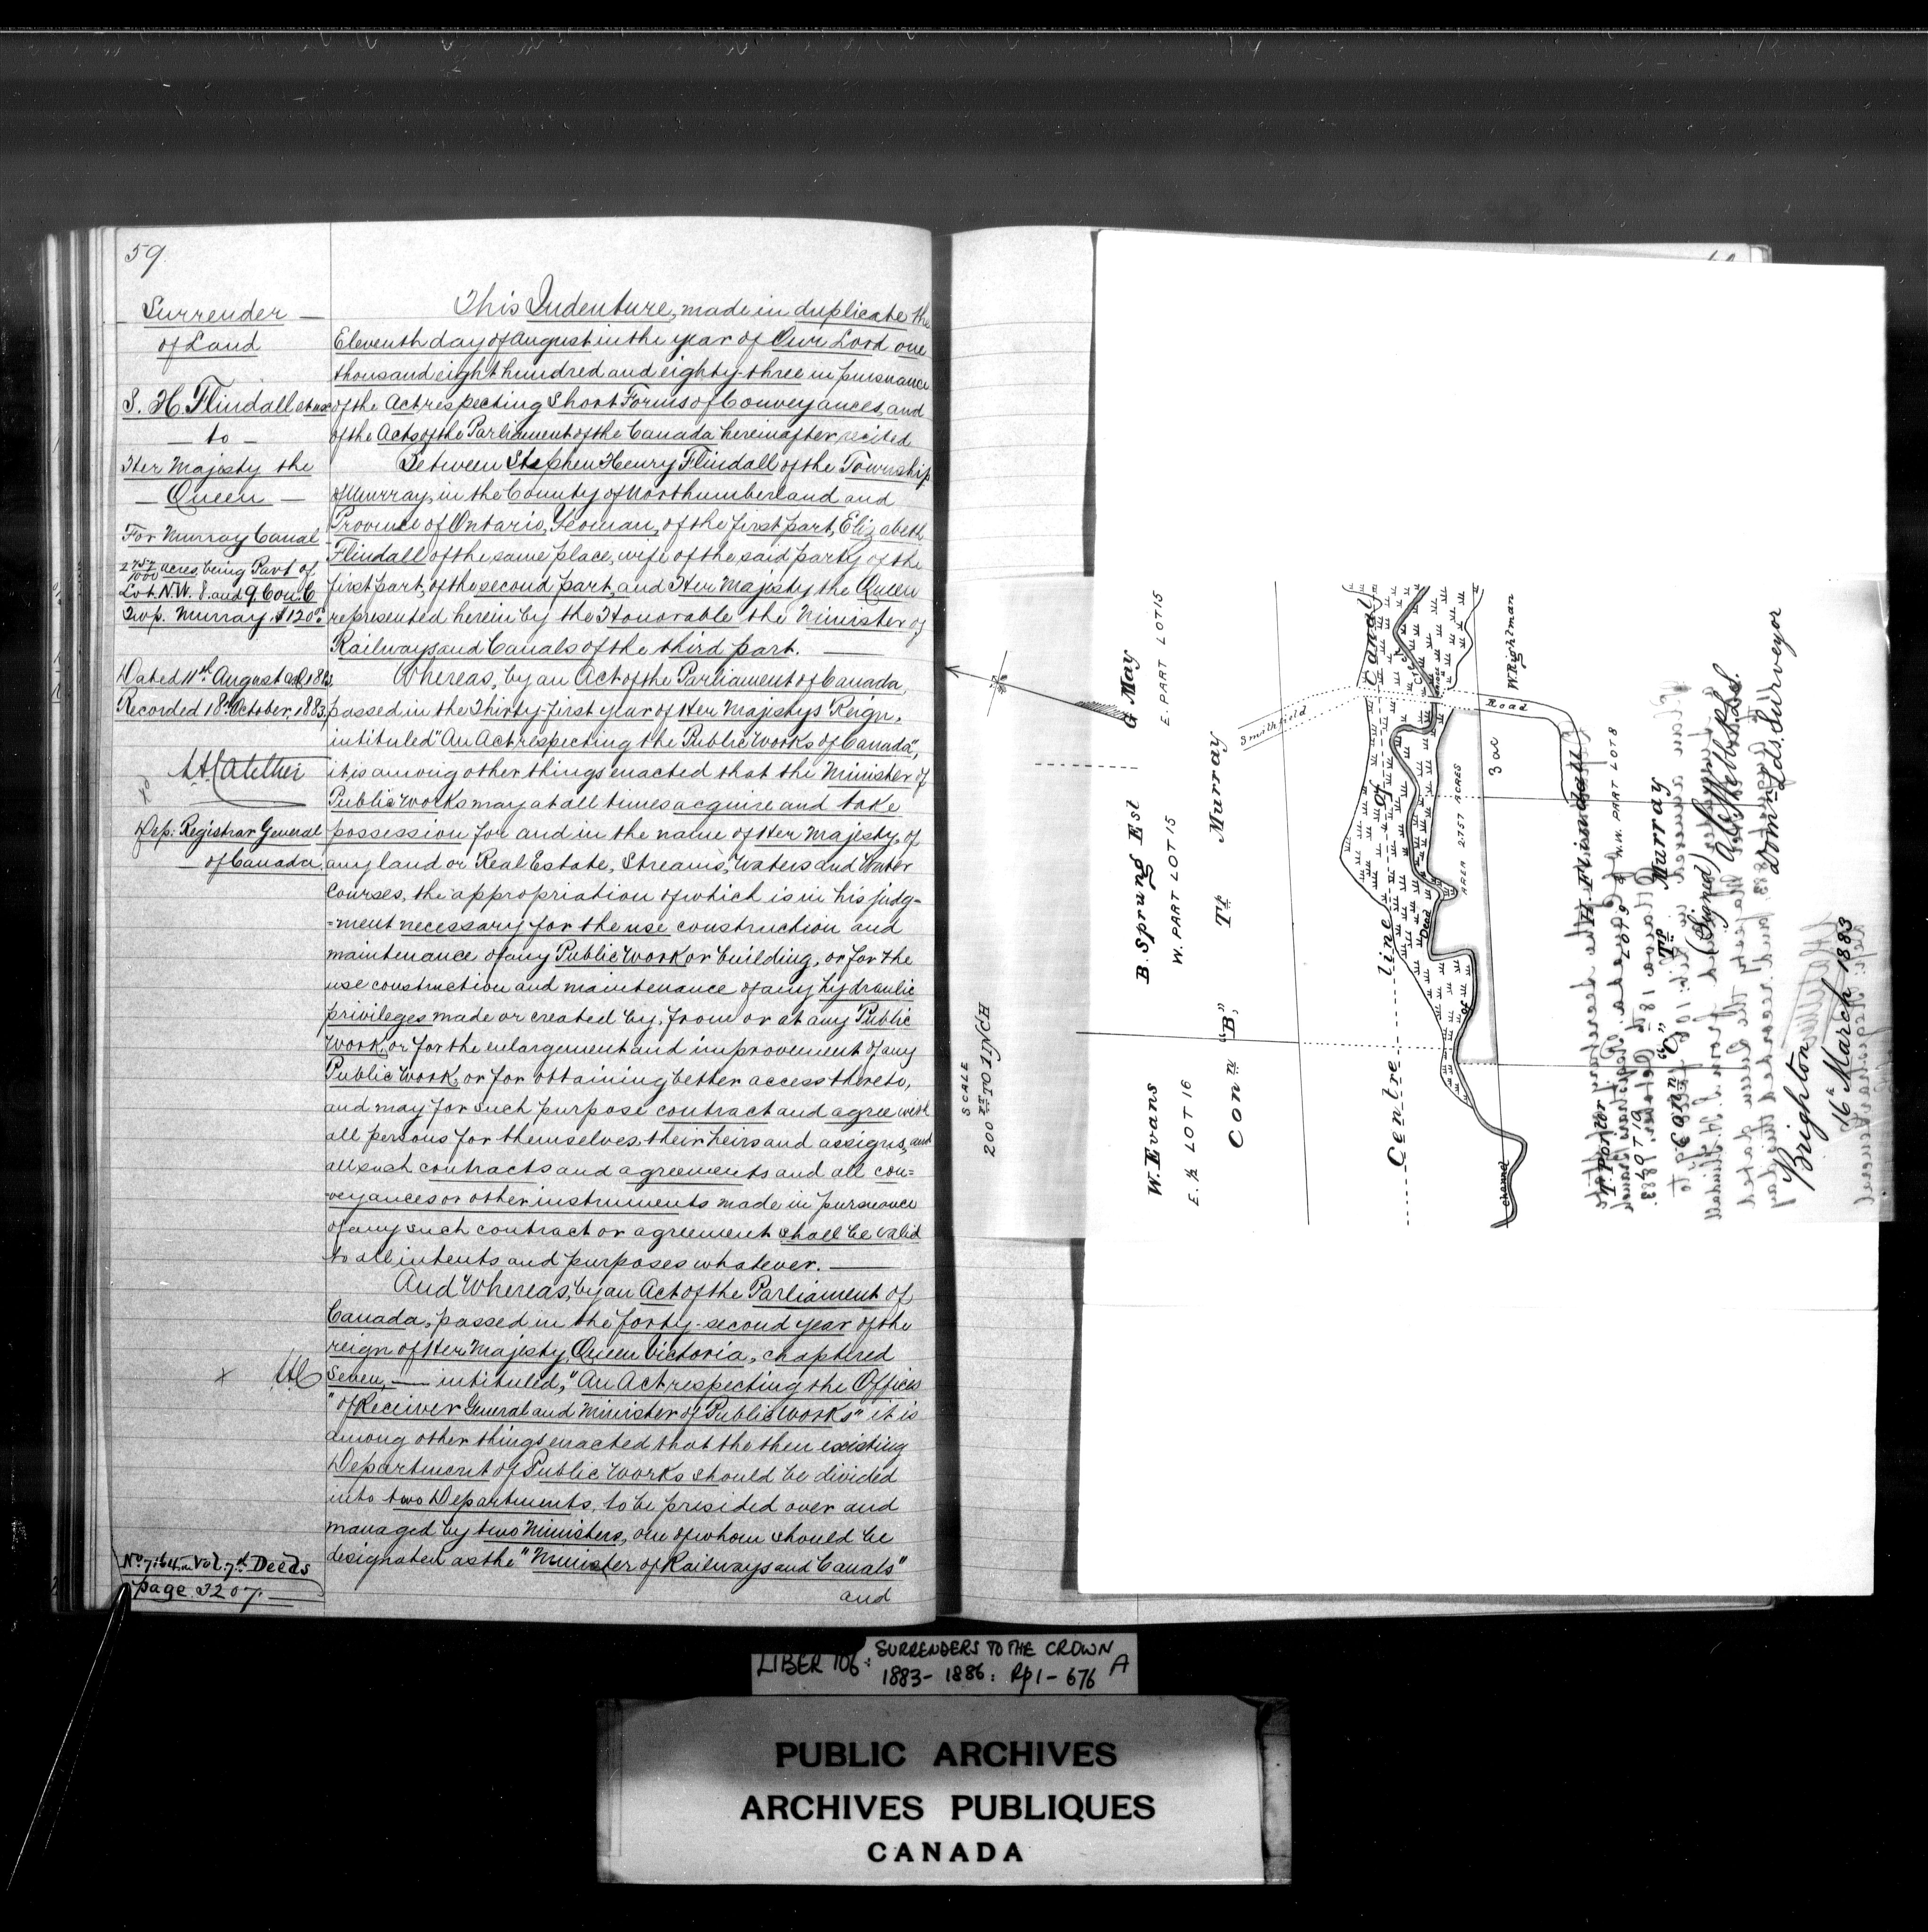 59.
Surrender
of Land
S. H. Flindall et ux
to
Her Majesty the
Queen
For Murray Canal
2 757/1000 acres, being Part of
Lot. N.W. 8. and 9. Con. C
Twp. Murray. $120.00
Dated 11th August A.D. 1883
Recorded 18th October, 1883,
Dep: Registrar General
of Canada.
This Indenture, made in duplicate the
Eleventh day of August in the year of Our Lord one
thousand eight hundred and eighty-three in pursuance
of the Act respecting Short Forms of Conveyances, and
of the Acts of the Parliament of the Canada hereinafter recited
Between Stephen Henry Flindall of the Township
of Murray, in the County of Northumberland and
Province of Ontario, Yeoman, of the first part, Elizabeth
Flindall of the same place, wife of the said party of the
first part, of the second part, and Her Majesty the Queen
represented herein by the Honorable the Minister of
Railways and Canals of the third part.
Whereas, by an Act of the Parliament of Canada,
passed in the Thirty-first year of Her Majestys Reign,
intituled "An Act respecting the Public Works of Canada",
it is among other things enacted that the Minister of
Public Works may at all times acquire and take
possession for and in the name of Her Majesty, of
any land or Real Estate, Streams, Waters and Water
courses, the appropriation of which is in his judg=
=ment necessary for the use construction and
maintenance of any Public Work or building, or for the
use construction and maintenance of any hydraulic
privileges made or created by, from or at any Public
Work, or for the enlargement and improvement of any
Public Work, or for obtaining better access thereto,
and may for such purpose contract and agree with
all persons for themselves, their heirs and assigns, and
all such contracts and agreements and all con=
veyances or other instruments made in pursuance
of any such contract or agreement shall be valid
to all intents and purposes whatever.
And Whereas, by an Act of the Parliament of
Canada, passed in the forty-second year of the
reign of Her Majesty, Queen Victoria, chaptered
Seven, intituled, "An Act respecting the Offices
"of Receiver General and Minister of Public Works" it is
among other things enacted that the then existing
Department of Public Works should be divided
into two Departments, to be presided over and
managed by two Ministers, one of whom should be
designated as the "Minister of Railways and Canals"
and
Vol. 7th Deeds
page 3207.
SCALE
200 FT TO 1 INCH
G May
E. PART LOT 15
B. Sprung Est
W. PART LOT 15
W. Evans
E. ½ LOT 16
Con n "B",
Tp Murray
Smithfield
Road
Centre line of Canal
Creek
Dead
channel
AREA 2.757 ACRES
3 ac
W. Rightman
H. Flindall
N.W. PART LOT 8
LOT 9
T. Portor
LOT 10
Con n "C"
Tp Murray
(Signed)
Dom n Lds. Surveyor
Brighton
16th March 1883
LIBER 106: SURRENDERS TO THE CROWN A
1883-1886: Pp 1-676
PUBLIC ARCHIVES
ARCHIVES PUBLIQUES
CANADA